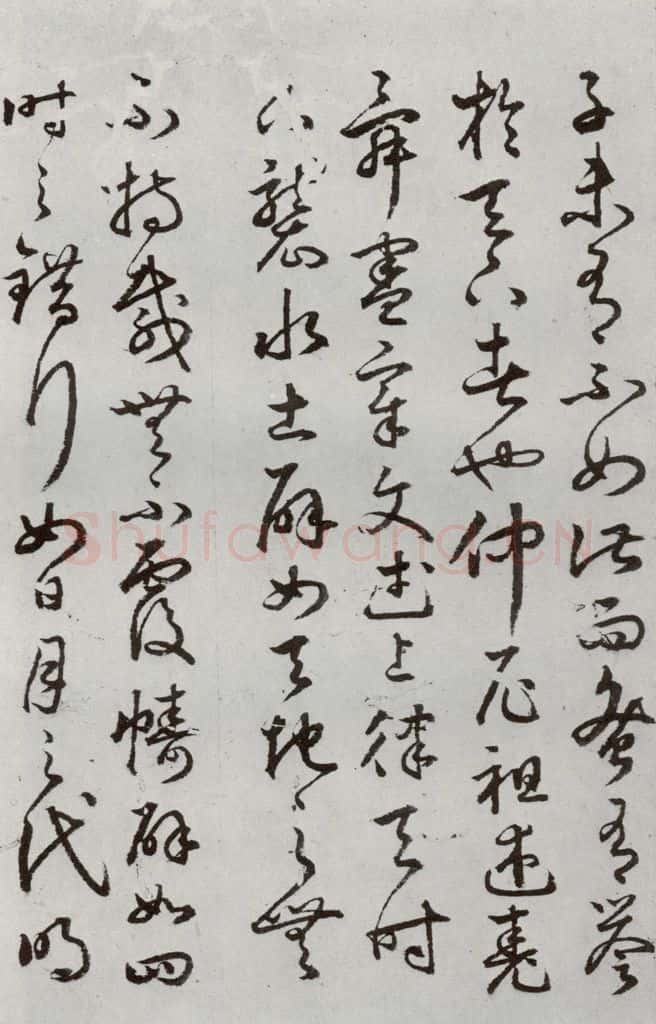 子未有不如此而蚤有譽
於天下者也仲尼祖述堯
舜憲章文武上律天時
下襲水土辟如天地之無
不持載無不覆幬辟如四
時之錯行如日月之代明
Shufawang.CN